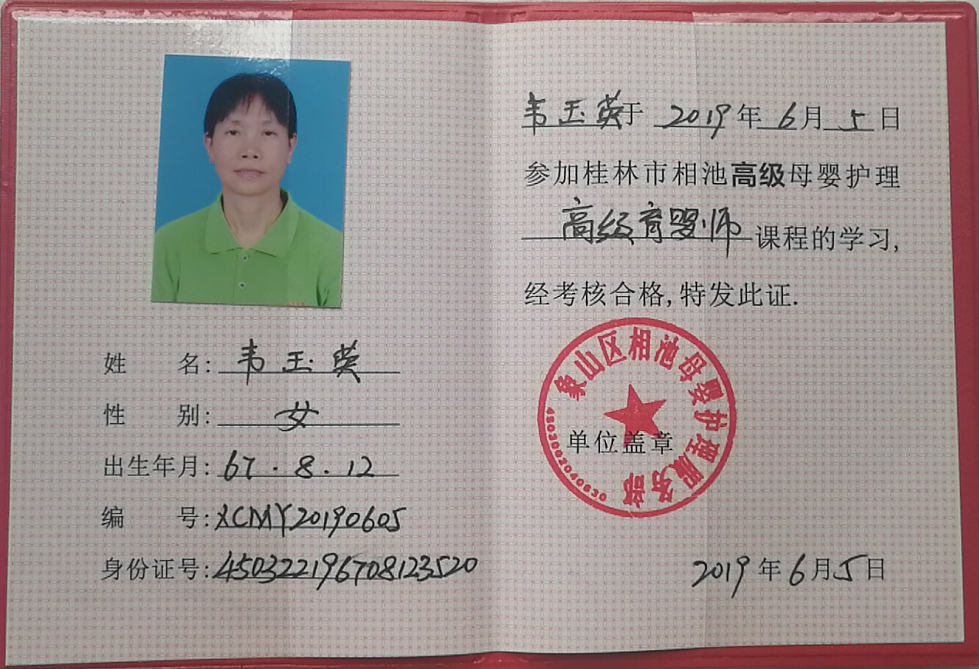 姓 名: 韦玉英
性 别: 女
出生年月: 67.8.12
编 号: XCMY20190605
身份证号: 450322196708123520
韦玉英于 2019年6月5日
参加桂林市相池高级母婴护理
高级育婴师课程的学习,
经考核合格,特发此证.
象山区相池母婴护理服务部
单位盖章
4503002040830
2019年6月5日